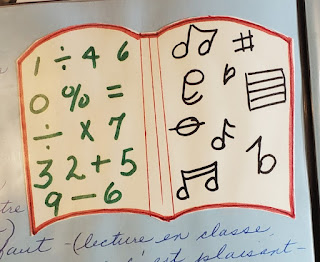 1 ÷ 4 6
0 % =
÷ x 7
3 2 + 5
9 - 6
#
b
tre
faut - (lecture en classe,
est plaisant -